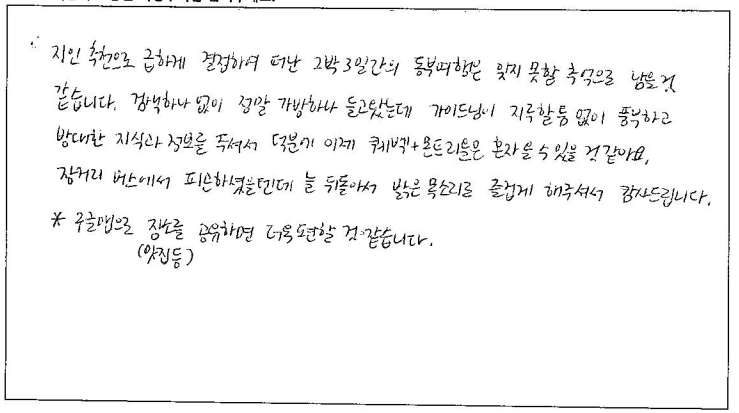 지인 추천으로 급하게 결정하여 떠난 2박3일간의 동부여행은 잊지 못할 추억으로 남을 것
같습니다. 검색하나 없이 정말 가방하나 들고왔는데 가이드님이 지루할틈 없이 풍부하고
방대한 지식과 정보를 주셔서 덕분에 이제 퀘벡+몬트리올은 혼자 올 수 있을 것 같아요.
장거리 버스에서 피곤하셨을텐데 늘 뒤돌아서 밝은 목소리로 즐겁게 해주셔서 감사드립니다.
* 구글맵으로 장소를 공유하면 더욱 편할 것 같습니다.
(맛집등)